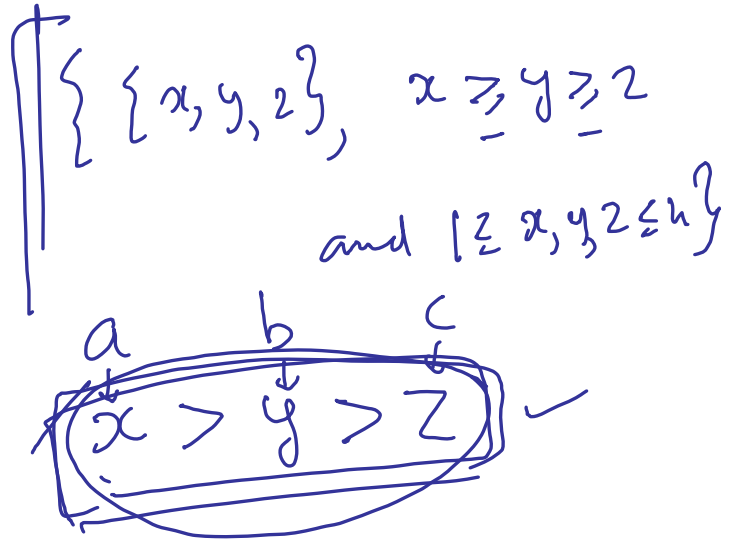 { {x, y, z}, x ≥ y ≥ z
and 1 ≤ x, y, z ≤ n }
a b c
x > y > z ✓